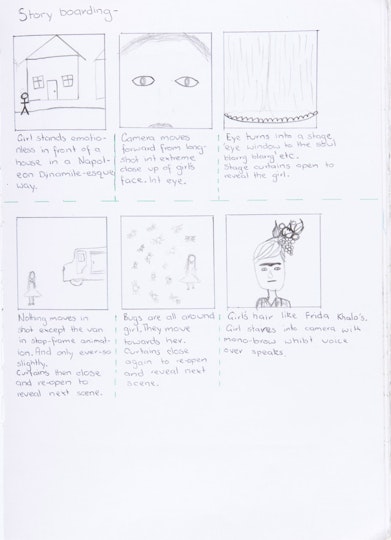 Story boarding-
Girl stands emotio-
nless in front of a
house in a Napol-
eon Dynamite-esque
way.
Camera moves
forward from long-
shot int extreme
close up of girls
face. Int eye.
Eye turns into a stage,
eye window to the soul
blarg blarg etc.
Stage curtains open to
reveal the girl.
Nothing moves in
shot except the van
in stop-frame animat-
ion. And only ever-so
slightly.
Curtains then close
and re-open to
reveal next scene.
Bugs are all around
girl. They move
towards her.
Curtains close
again to re-open
and reveal next
scene.
Girl's hair like Frida Khalo's.
Girl stares into camera with
mono-brow whilst voice
over speaks.